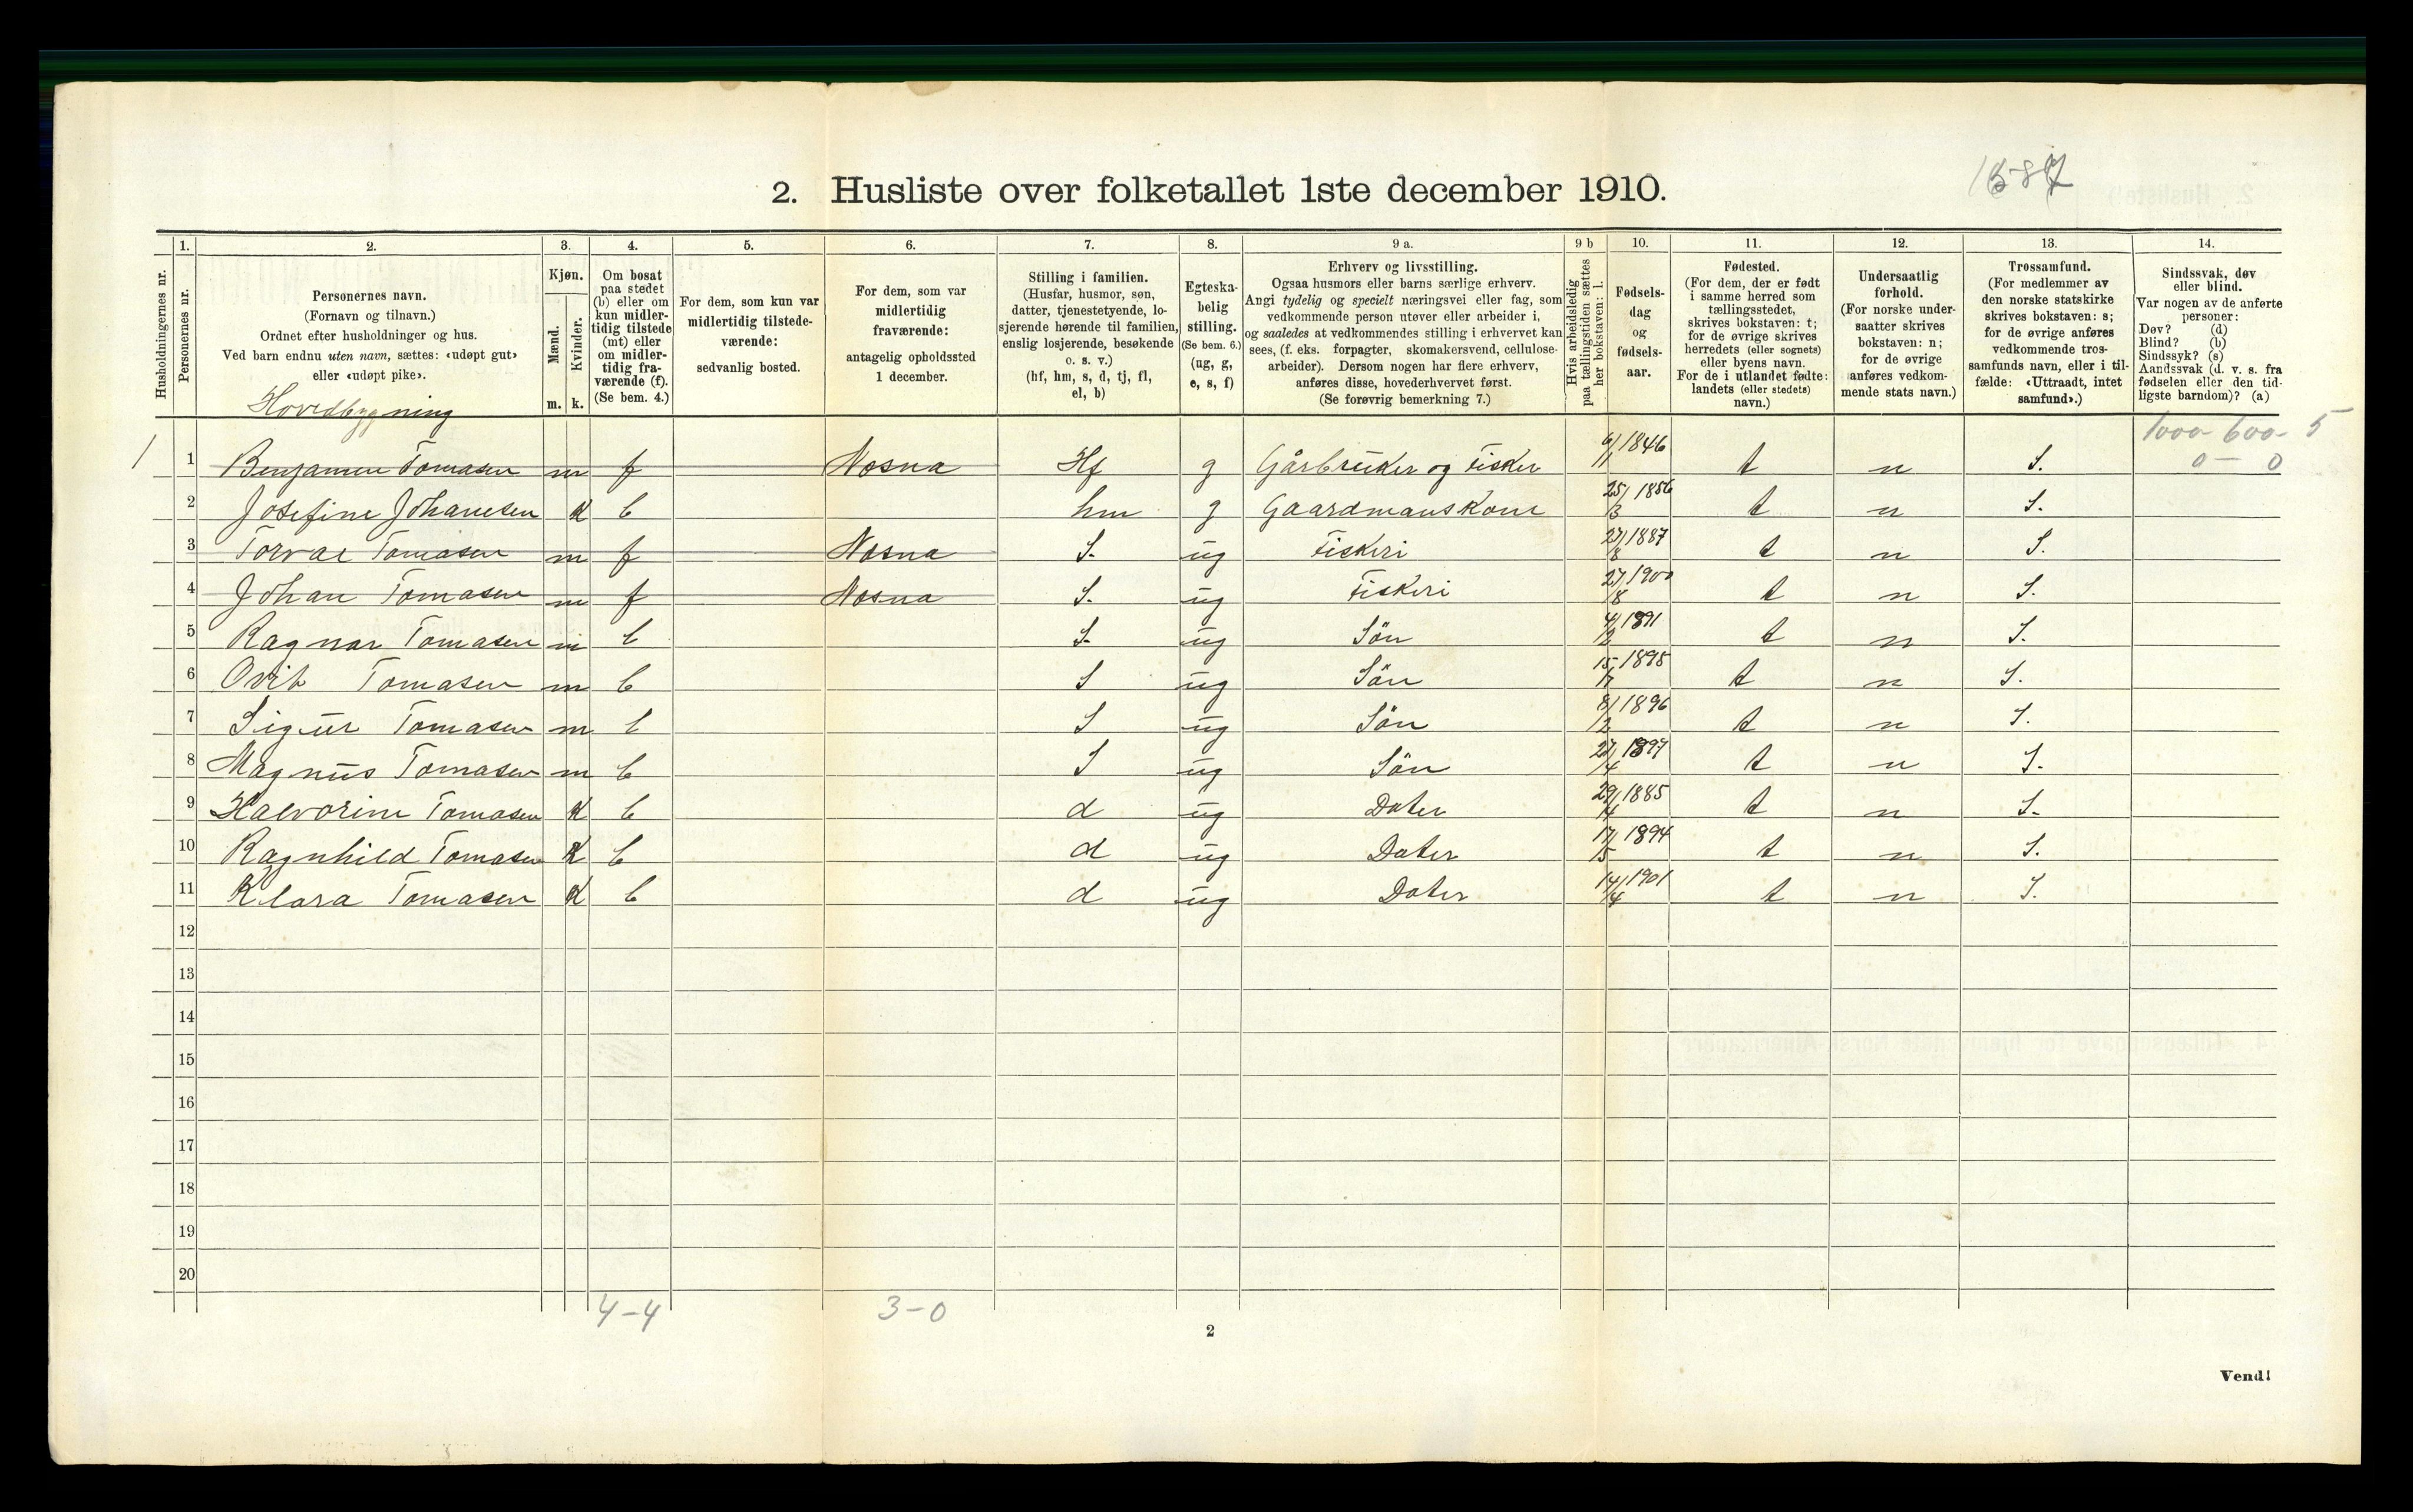 2. Husliste over folketallet 1ste december 1910.
1. 2. 3. 4. 5. 6. 7. 8. 9 a. 9 b 10. 11. 12. 13. 14.
Husholdningernes nr.
Personernes nr.
Personernes navn.
(Fornavn og tilnavn.)
Ordnet efter husholdninger og hus.
Ved barn endnu uten navn, sættes: «udøpt gut»
eller «udøpt pike».
Hovedbygning
Kjøn.
Mænd.
Kvinder.
m. k.
Om bosat
paa stedet
(b) eller om
kun midler-
tidig tilstede
(mt) eller
om midler-
tidig fra-
værende (f).
(Se bem. 4.)
For dem, som kun var
midlertidig tilstede-
værende:
sedvanlig bosted.
For dem, som var
midlertidig
fraværende:
antagelig opholdssted
1 december.
Stilling i familien.
(Husfar, husmor, søn,
datter, tjenestetyende, lo-
sjerende hørende til familien,
enslig losjerende, besøkende
o. s. v.)
(hf, hm, s, d, tj, fl,
el, b)
Egteska-
belig
stilling.
(Se bem. 6.)
(ug, g,
e, s, f)
Erhverv og livsstilling.
Ogsaa husmors eller barns særlige erhverv.
Angi tydelig og specielt næringsvei eller fag, som
vedkommende person utøver eller arbeider i,
og saaledes at vedkommendes stilling i erhvervet kan
sees, (f. eks. forpagter, skomakersvend, cellulose-
arbeider). Dersom nogen har flere erhverv,
anføres disse, hovederhvervet først.
(Se forøvrig bemerkning 7.)
Hvis arbeidsledig
paa tællingstiden sættes
her bokstaven: l.
Fødsels-
dag
og
fødsels-
aar.
Fødested.
(For dem, der er født
i samme herred som
tællingsstedet,
skrives bokstaven: t;
for de øvrige skrives
herredets (eller sognets)
eller byens navn.
For de i utlandet fødte:
landets (eller stedets)
navn.)
Undersaatlig
forhold.
(For norske under-
saatter skrives
bokstaven: n;
for de øvrige
anføres vedkom-
mende stats navn.)
Trossamfund.
(For medlemmer av
den norske statskirke
skrives bokstaven: s;
for de øvrige anføres
vedkommende tros-
samfunds navn, eller i til-
fælde: «Uttraadt, intet
samfund».)
Sindssvak, døv
eller blind.
Var nogen av de anførte
personer:
Døv? (d)
Blind? (b)
Sindssyk? (s)
Aandssvak (d. v. s. fra
fødselen eller den tid-
ligste barndom)? (a)
1000- 600- 5
0 - 0
1 1 Benjamen Tomasen m f Nesna Hf g Gårbruker og Fisker 6/11 1846 t n S.
2 Josefine Johanesen K b hm g Gaardmanskone 25/3 1856 t n S.
3 Torval Tomasen m f Nesna S. ug Fiskeri 27/8 1887 t n S.
4 Johan Tomasen m f Nesna S. ug Fiskeri 27/8 1900 t n S.
5 Ragnar Tomasen m b S. ug Sön 4/2 1891 t n S.
6 Tomasen m b S ug Sön t n S.
7 Sigur Tomasen m b S ug Sön 8/2 1896 t n S.
8 Magnus Tomasen m b S ug Sön 27/4 1897 t n S.
9 Halvorine Tomasen K b d ug Dater 29/4 1885 t n S.
10 Ragnhild Tomasen K b d ug Dater 17/5 1894 t n S.
11 Klara Tomasen K b d ug Dater 14/4 1901 t n S.
12
13
14
15
16
17
18
19
20
4-4 3-0
2
Vend!